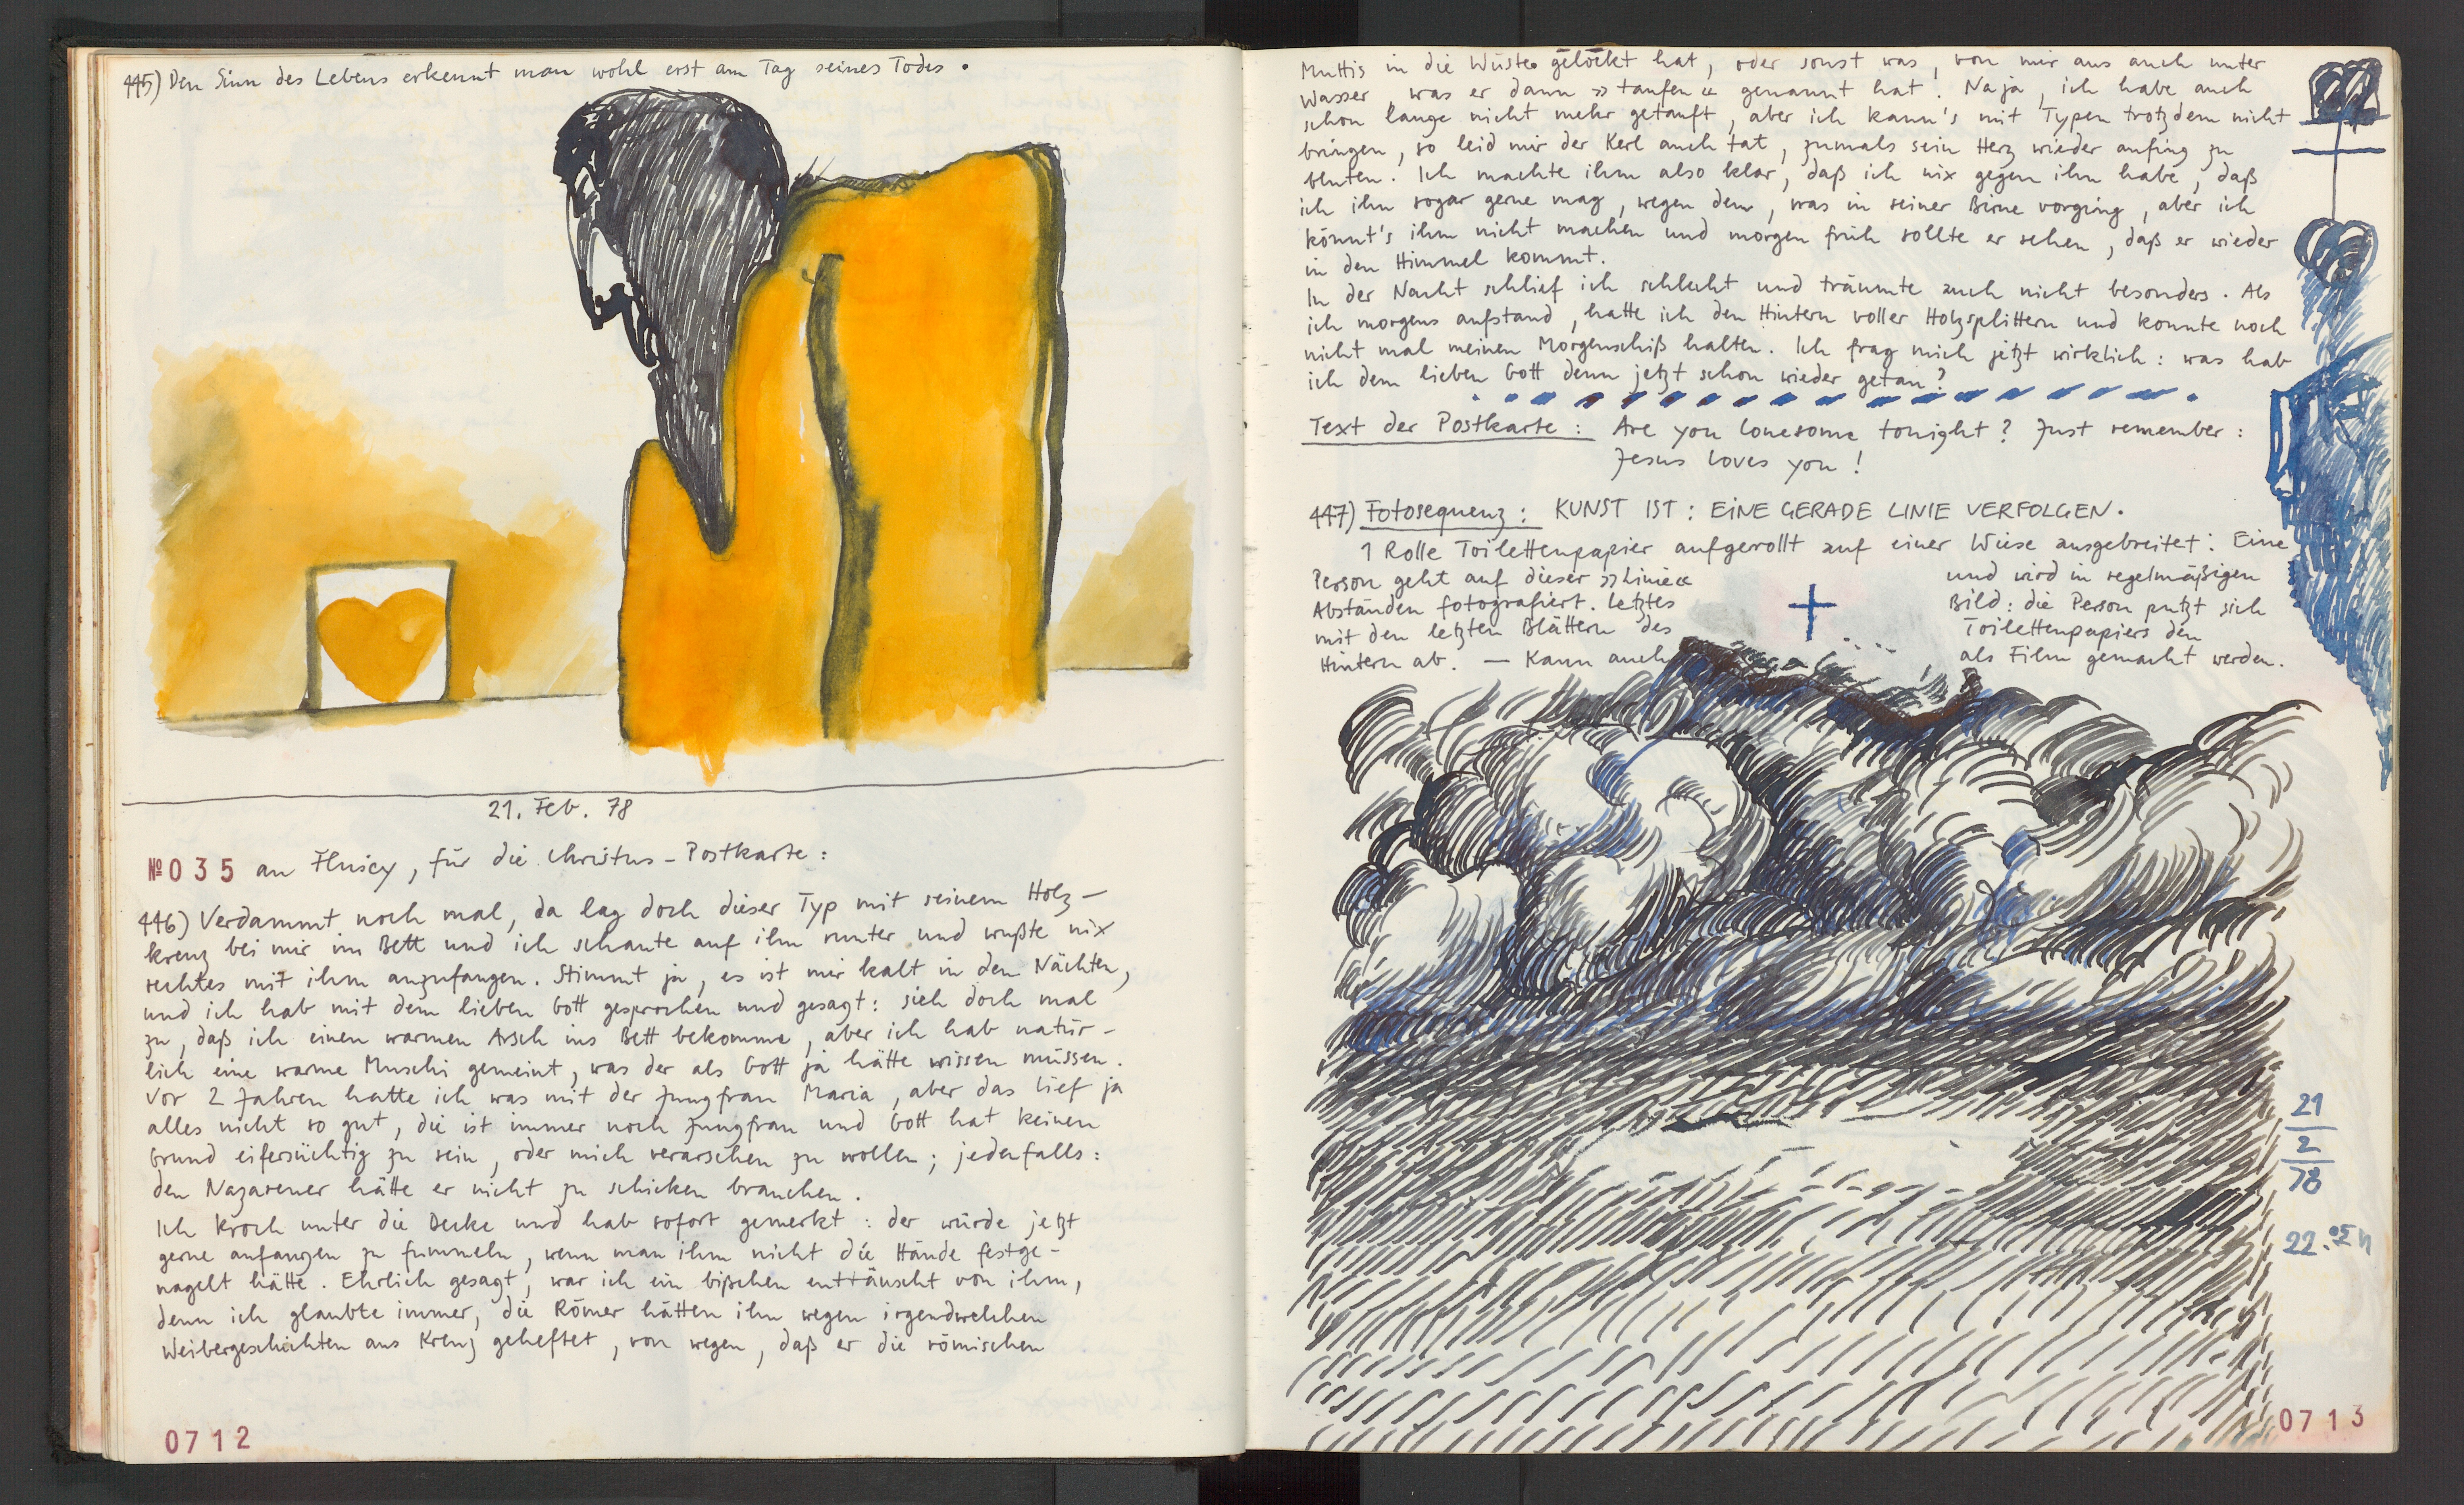 445) Den Sinn des Lebens erkennt man wohl erst am Tag seines Todes.
21. Feb. 78
№ 035 an Flusey, für die Christus-Postkarte:
446) Verdammt noch mal, da lag doch dieser Typ mit seinem Holz-
kreuz bei mir im Bett und ich schaute auf ihn runter und wußte nix
rechtes mit ihm anzufangen. Stimmt ja, es ist mir kalt in den Nächten,
und ich hab mit dem lieben Gott gesprochen und gesagt: sieh doch mal
zu, daß ich einen warmen Arsch ins Bett bekomme, aber ich hab natür-
lich eine warme Muschi gemeint, was der als Gott ja hätte wissen müssen.
Vor 2 Jahren hatte ich was mit der Jungfrau Maria, aber das lief ja
alles nicht so gut, die ist immer noch Jungfrau und Gott hat keinen
Grund eifersüchtig zu sein, oder mich verarschen zu wollen; jedenfalls:
den Nazarener hätte er nicht zu schicken brauchen.
Ich kroch unter die Decke und hab sofort gemerkt: der würde jetzt
gerne anfangen zu fummeln, wenn man ihm nicht die Hände festge-
nagelt hätte. Ehrlich gesagt, war ich ein bißchen enttäuscht von ihm,
denn ich glaubte immer, die Römer hätten ihn wegen irgendwelchen
Weibergeschichten ans Kreuz geheftet, von wegen, daß er die römischen
0712
Muttis in die Wüste gelockt hat, oder sonst was, von mir aus auch unter
Wasser, was er dann »taufen« genannt hat. Naja, ich habe auch
schon lange nicht mehr getauft, aber ich kann's mit Typen trotzdem nicht
bringen, so leid mir der Kerl auch tat, zumals sein Herz wieder anfing zu
bluten. Ich machte ihm also klar, daß ich nix gegen ihn habe, daß
ich ihn sogar gerne mag, wegen dem, was in seiner Birne vorging, aber ich
könnt's ihm nicht machen und morgen früh sollte er sehen, daß er wieder
in den Himmel kommt.
In der Nacht schlief ich schlecht und träumte auch nicht besonders. Als
ich morgens aufstand, hatte ich den Hintern voller Holzsplittern und konnte noch
nicht mal meinen Morgenschiß halten. Ich frag mich jetzt wirklich: was hab
ich dem lieben Gott denn jetzt schon wieder getan?
Text der Postkarte: Are you lonesome tonight? Just remember:
Jesus loves you!
447) Fotosequenz: KUNST IST: EINE GERADE LINIE VERFOLGEN.
1 Rolle Toilettenpapier aufgerollt auf einer Wiese ausgebreitet: Eine
Person geht auf dieser »Linie« und wird in regelmäßigen
Abständen fotografiert. Letztes Bild: die Person putzt sich
mit den letzten Blättern des Toilettenpapiers den
Hintern ab. — Kann auch als Film gemacht werden.
21
2
78
22.05 h
0713